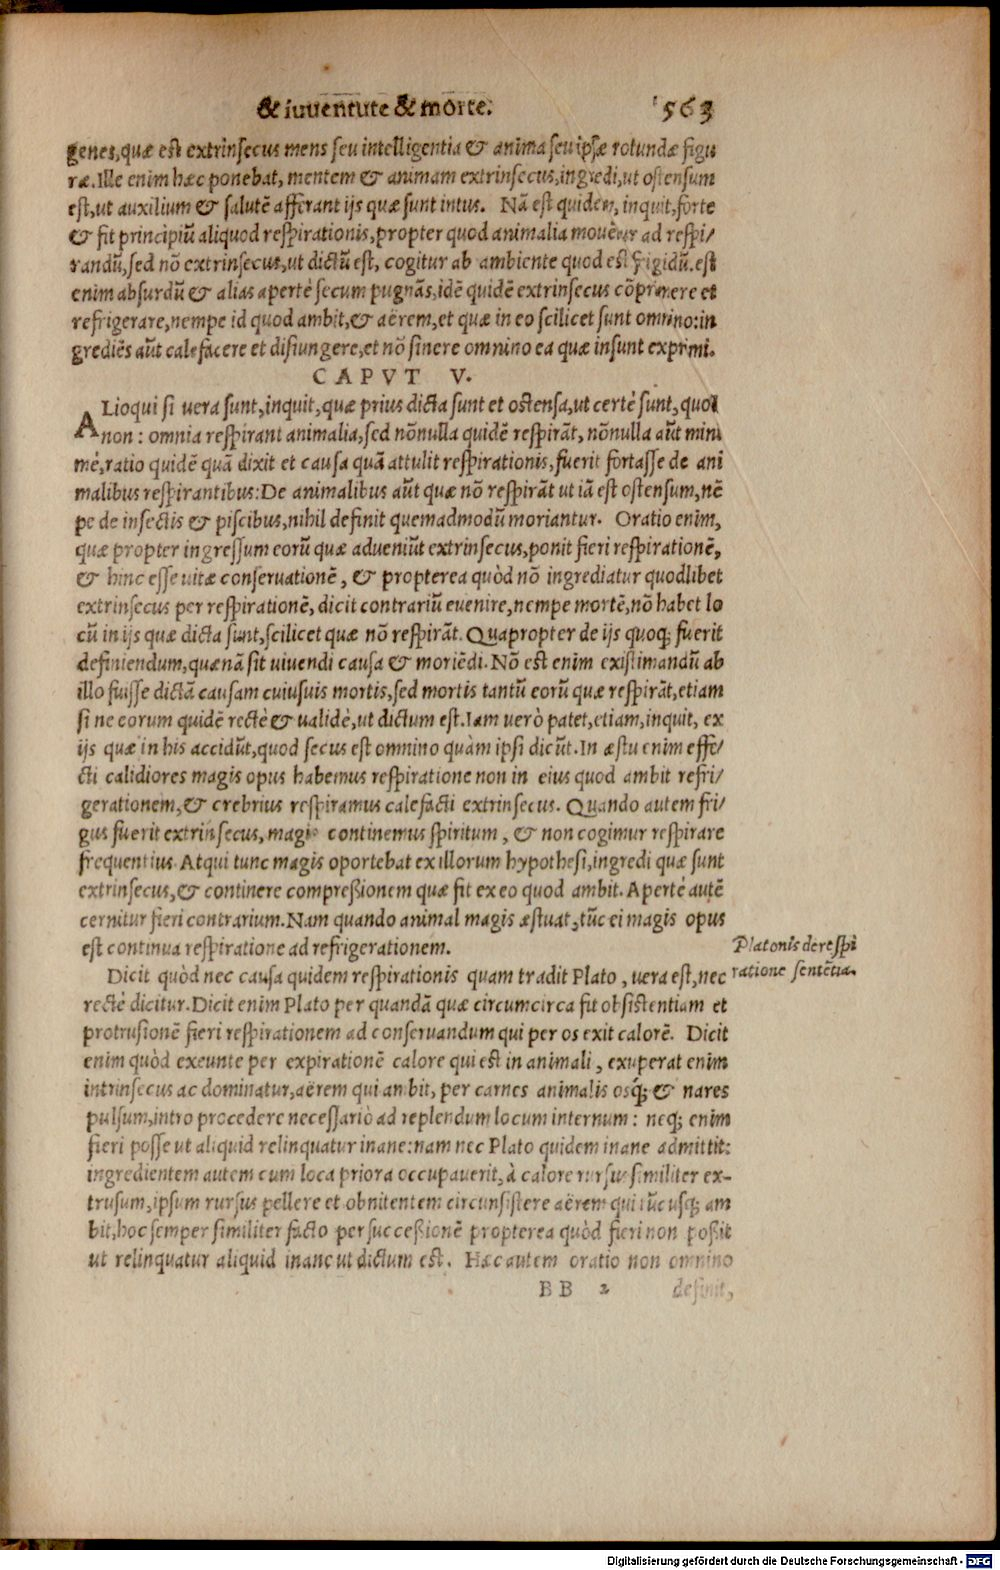 & iuventute & morte. 563
genes, quæ est extrinsecus mens seu intelligentia & anima seu ipsæ rotundæ figu
ræ. Ille enim hæc ponebat, mentem & animam extrinsecus, ingredi, ut ostensum
est, ut auxilium & salutē afferant ijs quæ sunt intus. Nā est quidem, inquit, forte
& fit principiū aliquod respirationis, propter quod animalia movētur ad respi/
randū, sed nō extrinsecus, ut dictū est, cogitur ab ambiente quod est frigidū. est
enim absurdū & alias apertè secum pugnās, idē quidē extrinsecus cōprimere et
refrigerare, nempe id quod ambit, & aërem, et quæ in eo scilicet sunt omnino: in
grediēs aūt calefacere et disiungere, et nō sinere omnino ea quæ insunt exprimi.
CAPVT V.
ALioqui si vera sunt, inquit, quæ prius dicta sunt et ostensa, ut certè sunt, quod
non: omnia respirant animalia, sed nōnulla quidē respirāt, nōnulla aūt mini
mè, ratio quidē quā dixit et causa quā attulit respirationis, fuerit fortasse de ani
malibus respirantibus: De animalibus aūt quæ nō respirāt ut iā est ostensum, nē
pe de insectis & piscibus, nihil definit quemadmodū moriantur. Oratio enim,
quæ propter ingressum eorū quæ adveniūt extrinsecus, ponit fieri respirationē,
& hinc esse uitæ conservationē, & propterea quòd nō ingrediatur quodlibet
extrinsecus per respirationē, dicit contrariū evenire, nempe mortē, nō habet lo
cū in ijs quæ dicta sunt, scilicet quæ nō respirāt. Quapropter de ijs quoq; fuerit
definiendum, quænā sit uivendi causa & moriēdi. Nō est enim existimandū ab
illo fuisse dictā causam cuiusuis mortis, sed mortis tantū eorū quæ respirāt, etiam
si ne eorum quidē rectè & validè, ut dictum est. Iam verò patet, etiam, inquit, ex
ijs quæ in his accidūt, quod secus est omnino quàm ipsi dicūt. In æstu enim effe/
cti calidiores magis opus habemus respiratione non in eius quod ambit refri/
gerationem, & crebrius respiramus calefacti extrinsecus. Quando autem fri/
gus fuerit extrinsecus, magis continemus spiritum, & non cogimur respirare
frequentius. Atqui tunc magis oportebat ex illorum hypothesi, ingredi quæ sunt
extrinsecus, & continere compreßionem quæ fit ex eo quod ambit. Apertè autē
cernitur fieri contrarium. Nam quando animal magis æstuat, tūc ei magis opus
est continua respiratione ad refrigerationem.
Platonis de respi
ratione sentētia.
Dicit quòd nec causa quidem respirationis quam tradit Plato, vera est, nec
rectè dicitur. Dicit enim Plato per quandā quæ circumcirca fit obsistentiam et
protrusionē fieri respirationem ad conservandum qui per os exit calorē. Dicit
enim quòd exeunte per expirationē calore qui est in animali, exuperat enim
intrinsecus ac dominatur, aërem qui ambit, per carnes animalis osq; & nares
pulsum, intro procedere necessariò ad replendum locum internum: neq; enim
fieri posse ut aliquid relinquatur inane: nam nec Plato quidem inane admittit:
ingredientem autem cum loca priora occupaverit, à calore rursus similiter ex-
trusum, ipsum rursus pellere et obnitentem circunsistere aërem qui tūc usq; am
bit, hoc semper similiter facto per succeßionē propterea quòd fieri non poßit
ut relinquatur aliquid inane ut dictum est. Hæc autem oratio non omnino
BB 2 definit,
Digitalisierung gefördert durch die Deutsche Forschungsgemeinschaft - DFG